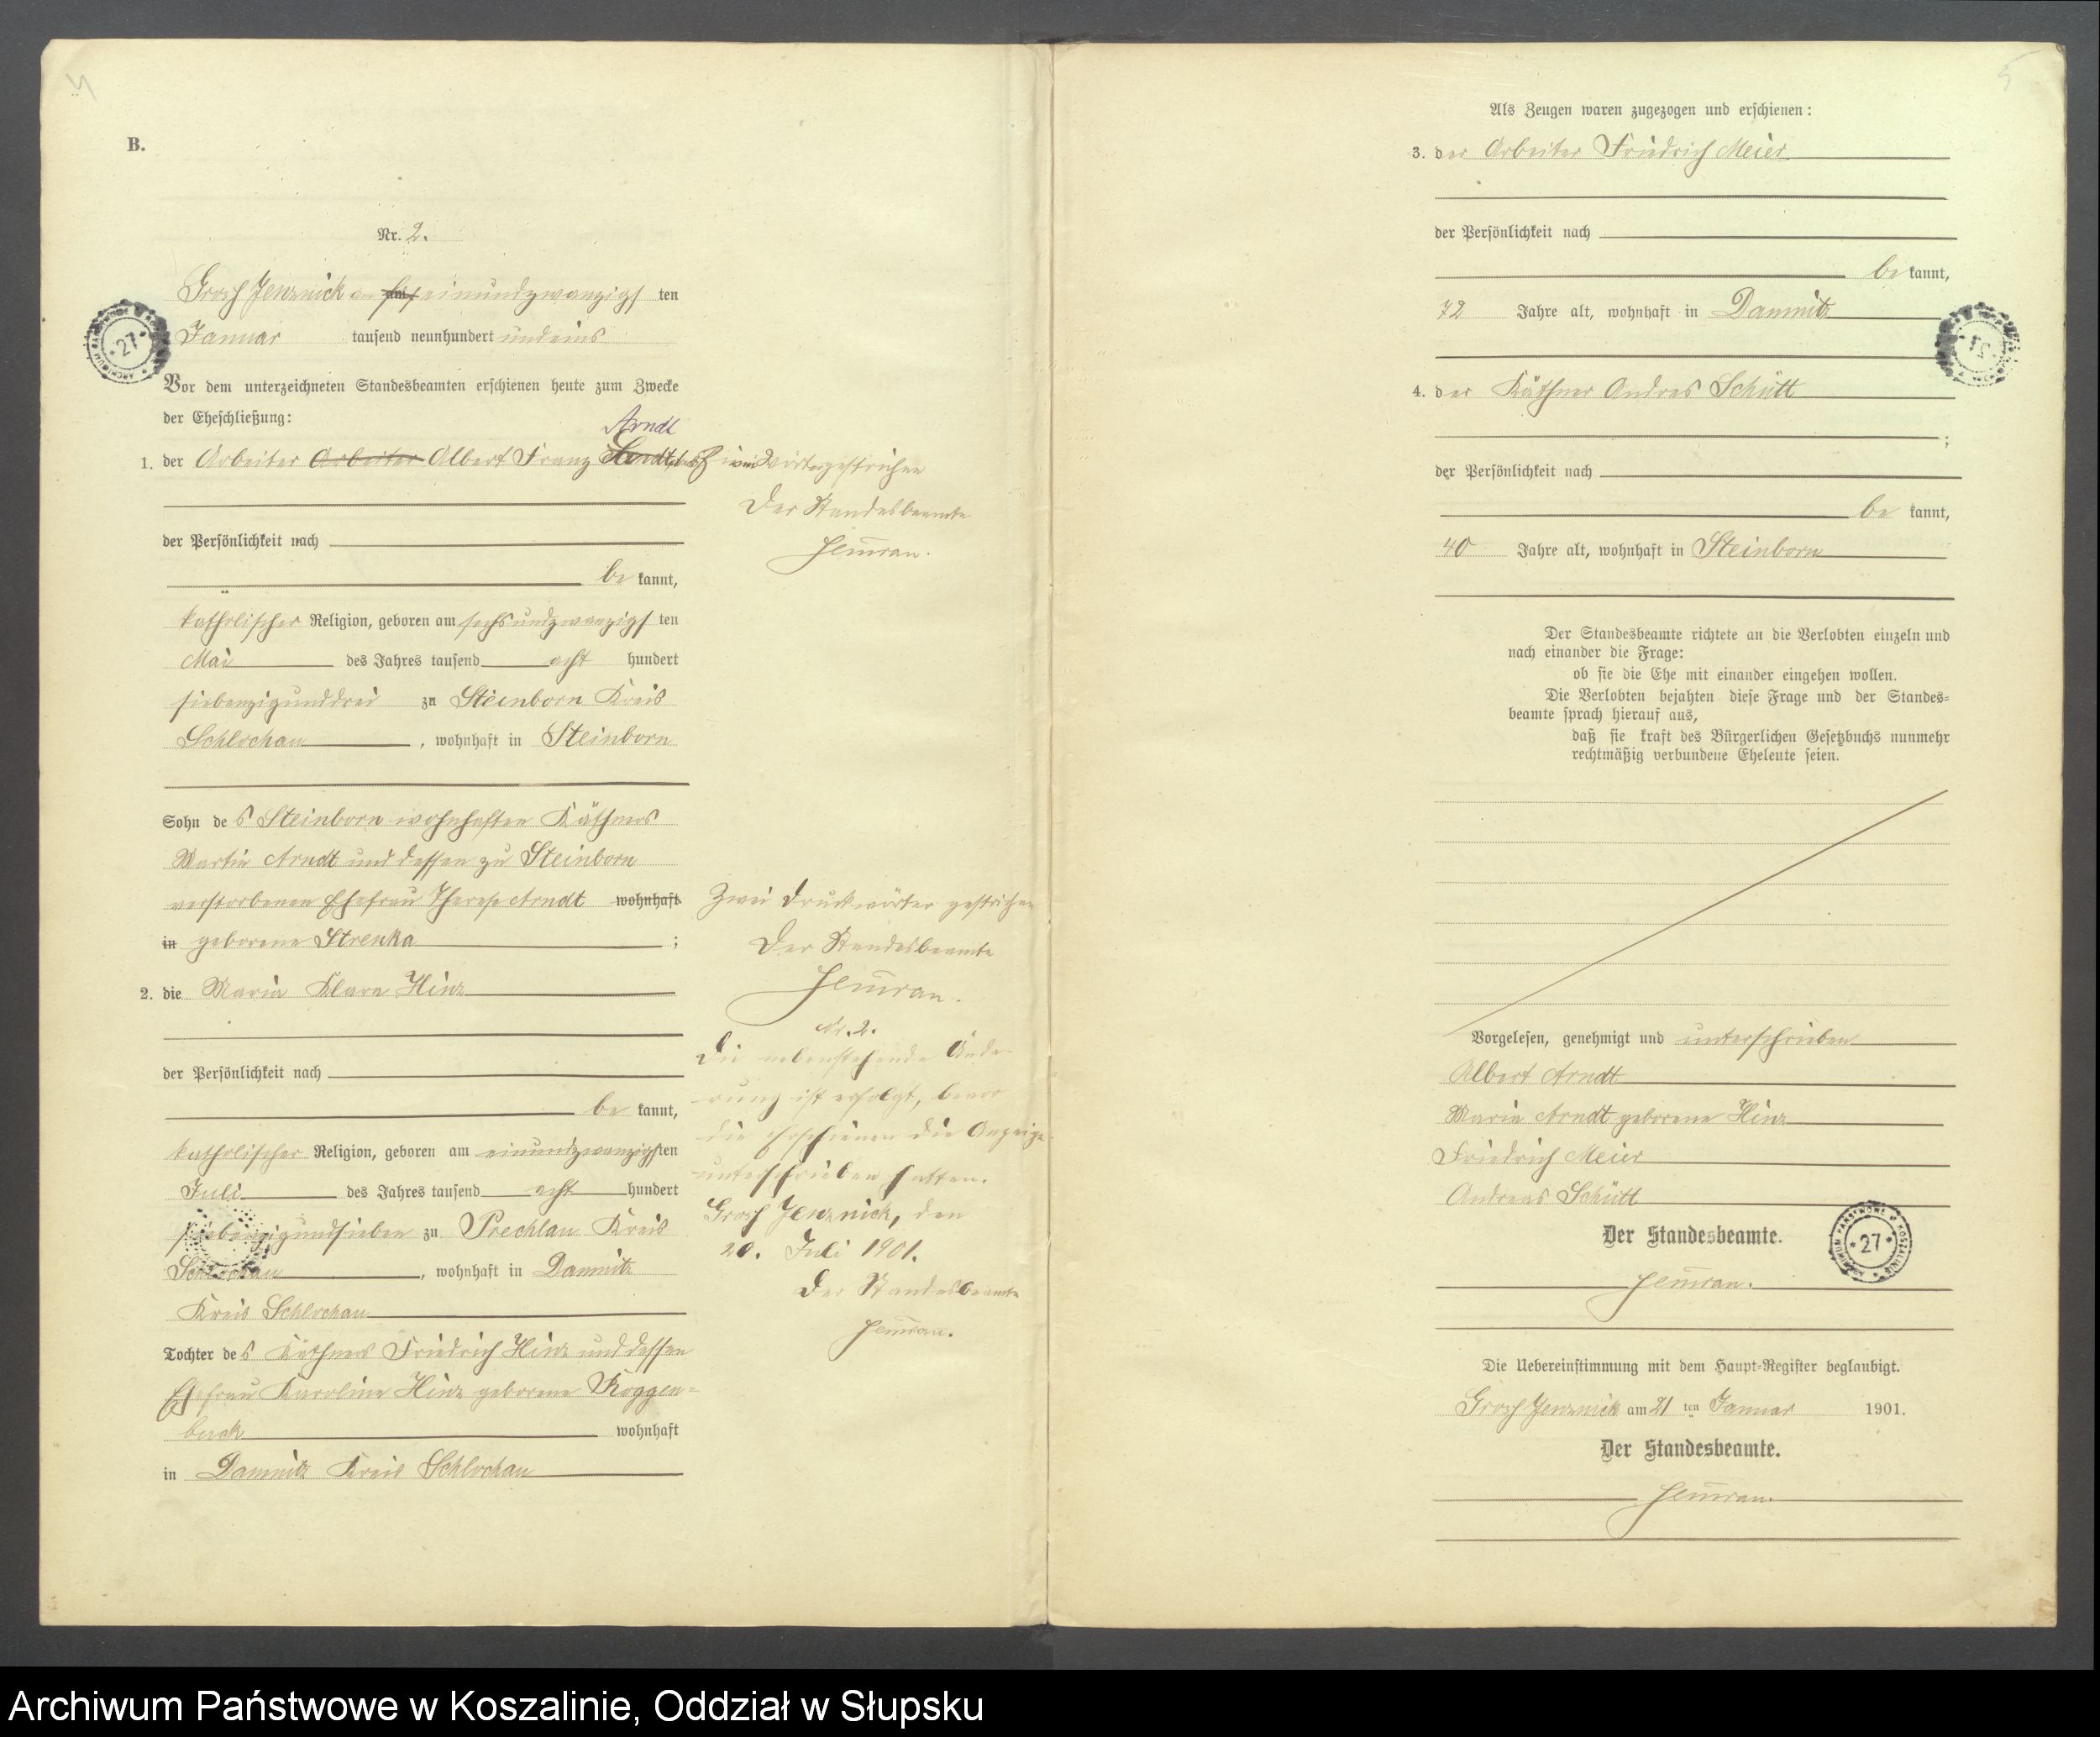 B.
Nr. 2.
Groß Jenznick am einundzwanzigsten
Januar tausend neunhundert und eins
Vor dem unterzeichneten Standesbeamten erschienen heute zum Zwecke
der Eheschließung:
Arndt
1. der Arbeiter Arbeiter Albert Franz
Wörter gestrichen
Der Standesbeamte
der Persönlichkeit nach
be kannt,
katholischer Religion, geboren am sechsundzwanzigsten
Mai des Jahres tausend acht hundert
siebenzigunddrei zu Steinborn Kreis
Schlochau, wohnhaft in Steinborn
Sohn des Steinborn wohnhaften Käthners
Martin Arndt und dessen zu Steinborn
verstorbenen Ehefrau Therese Arndt wohnhaft
in geborene Strenka ;
Zwei Druckwörter gestrichen
Der Standesbeamte
2. die Maria Klara Hinz
der Persönlichkeit nach
be kannt,
katholischer Religion, geboren am einundzwanzigsten
Juli des Jahres tausend acht hundert
siebenzigundsieben zu Prechlau Kreis
Schlochau, wohnhaft in Damnitz
Kreis Schlochau
Tochter des Käthners Friedrich Hinz und dessen
Ehefrau Karoline Hinz geborene Roggen-
buck wohnhaft
in Damnitz Kreis Schlochau
Nr. 2.
Die nebenstehende Ände-
rung ist erfolgt, bevor
die Erschienen die Anzeige
unterschrieben hatten.
Groß Jenznick, den
20. Juli 1901.
Der Standesbeamte
Als Zeugen waren zugezogen und erschienen:
3. der Arbeiter Friedrich Meier
der Persönlichkeit nach
be kannt,
72 Jahre alt, wohnhaft in Damnitz
4. der Käthner Andres Schütt
;
der Persönlichkeit nach
be kannt,
40 Jahre alt, wohnhaft in Steinborn
Der Standesbeamte richtete an die Verlobten einzeln und
nach einander die Frage:
ob sie die Ehe mit einander eingehen wollen.
Die Verlobten bejahten diese Frage und der Standes-
beamte sprach hierauf aus,
daß sie kraft des Bürgerlichen Gesetzbuchs nunmehr
rechtmäßig verbundene Eheleute seien.
Vorgelesen, genehmigt und unterschrieben
Albert Arndt
Maria Arndt geborene Hinz
Friedrich Meier
Andreas Schütt
Der Standesbeamte.
Die Uebereinstimmung mit dem Haupt-Register beglaubigt.
Groß Jenznick am 21 ten Januar 1901.
Der Standesbeamte.
27
27
Archiwum Państwowe w Koszalinie, Oddział w Słupsku